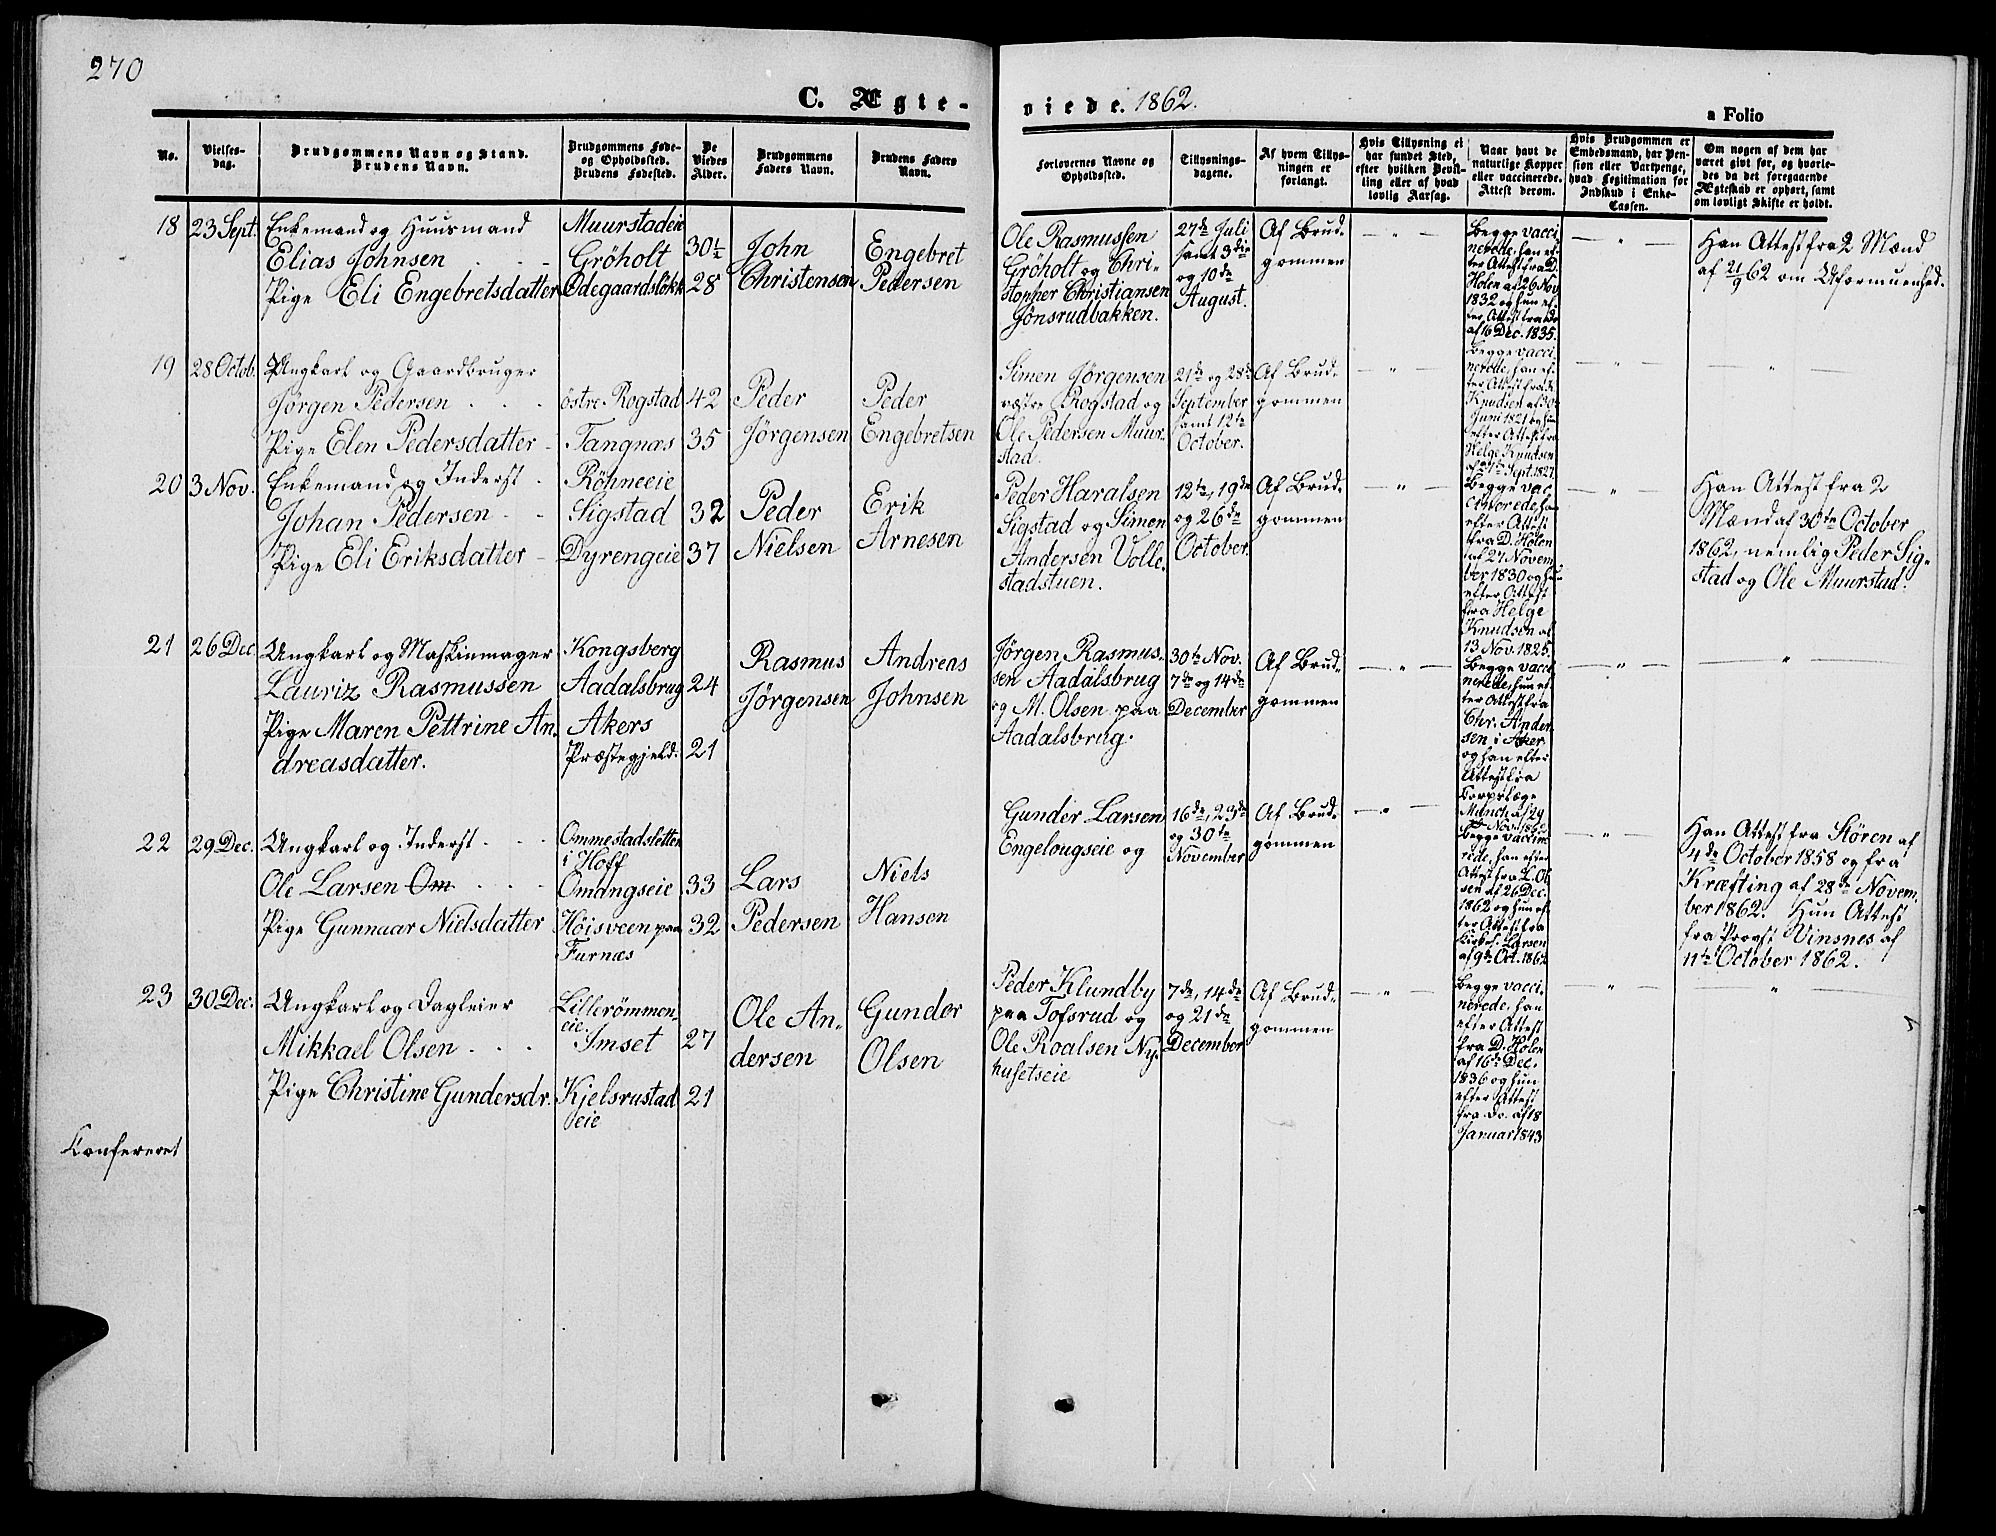 270
C. Ægte-
viede. 1862.
a Folio
No.
Vielses-
dag.
Brudgommens Navn og Stand.
Brudens Navn.
Brudgommens Føde-
og Opholdssted.
Brudens Fødested.
De
Viedes
Alder.
Brudgommens
Faders Navn.
Brudens Faders
Navn.
Forlovernes Navne og
Opholdssted.
Tillysnings-
dagene.
Af hvem Tillys-
ningen er
forlangt.
Hvis Tillysning ei
har fundet Sted,
efter hvilken Bevil-
ling eller af hvad
lovlig Aarsag.
Naar havt de
naturlige Kopper
eller vaccinerede.
Attest derom.
Hvis Brudgommen er
Embedsmand, har Pen-
sion eller Vartpenge,
hvad Legitimation for
Indskud i Enke-
Cassen.
Om nogen af dem har
været gift før, og hvorle-
des da det foregaaende
Ægteskab er ophørt, samt
om lovligt Skifte er holdt.
18
23 Sept.
Enkemand og Huusmand
Elias Johnsen
Pige Eli Engebretsdatter
Muurstadeie
Gröholt
Ödegaardslökk
30½
28
John
Christensen
Engebret
Pedersen
Ole Rasmussen
Gröholt og Chri-
stopher Christiansen
Jönsrudbakken.
27de Juli
samt 3die
og 10de
August.
Af Brud-
gommen
Begge vacci
nerede, han ef-
ter Attest fra D.
Holen af 26 Nov
1832 og hun ef-
ter Attest fra do
af 16 Dec. 1835.
Han Attest fra 2 Mænd
af 21/9 62 om Uformuenhed.
19
28 Octob.
Ungkarl og Gaardbruger
Jørgen Pedersen
Pige Elen Pedersdatter
östre Rogstad
Tangnæs
42
35
Peder
Jörgensen
Peder
Engebretsen
Simen Jørgensen
vestre Rogstad og
Ole Pedersen Muur-
stad.
21de og 28de
September
samt 12te
October.
Af Brud-
gommen
Begge vacci
nerede, han ef-
ter Attest fra
Knudsen af 30
Juni 1821 og hun
efter Attest fra
Helge Knudsen
af 27de Sept. 1827.
20
3 Nov.
Enkemand og Inderst
Johan Pedersen
Pige Eli Eriksdatter
Röhneeie
Sigstad
Dyrengeie
32
37
Peder
Nielsen
Erik
Arnesen
Peder Haralsen
Sigstad og Simen
Andersen Volle-
stadstuen.
12te, 19de
og 26de
October.
Af Brud-
gommen
Begge vac
cinerede, han
efter Attest
fra D. Holen
af 27 Novem
ber 1830 og hun
efter Attest
fra Helge
Knudsen af
13 Nov. 1825.
Han Attest fra 2
Mænd af 30te October
1862, nemlig Peder Sig-
stad og Ole Muurstad.
21
26 Dec.
Ungkarl og Maskinmager
Lauriz Rasmussen
Pige Maren Pettrine An-
dreasdatter.
Kongsberg
Aadalsbrug
Akers
Præstegjeld.
24
21
Rasmus
Jørgensen
Andreas
Johnsen
Jørgen Rasmus-
sen Aadalsbrug
og M. Olsen paa
Aadalsbrug.
30te Nov.
7de og 14de
December
Af Brud-
gommen
Begge vacci
nerede, hun ef-
ter Attest fra
Chr. Ander
sen i Aker
og han efter
Attest fra
Corpslæge
Munch af 29
Nov. 1862
22
29 Dec.
Ungkarl og Inderst
Ole Larsen Om
Pige Gunnaar Nielsdatter
Ommestadsletten
i Hoff
Omangseie
Höisveen paa
Furnæs
33
32
Lars
Pedersen
Niels
Hansen
Gunder Larsen
Engelougseie og
16de, 23de
og 30te
November
Af Brud-
gommen
Begge vaccine
rede, han efter
Attest fra L. Ol-
sen af 26 Dec.
1862 og hun ef-
ter Attest fra
Kirkes. Larsen
af 9de Oct. 1862
Han Attest fra Stören af
4de October 1858 og fra
Kræfting af 28de Novem-
ber 1862. Hun Attest
fra Provst Vinsnes af
11te October 1862.
23
30 Dec.
Ungkarl og Dagleier
Mikkael Olsen
Pige Christine Gundersdr.
Lillerömmen-
eie.
Imset
Kjelsrustad
eie
27
21
Ole An-
dersen
Gunder
Olsen
Peder Klundby
paa Tofsrud og
Ole Roalsen Ny-
husetseie
7de, 14de
og 21de
December
Af Brud-
gommen
Begge vacci-
nerede, han
efter Attest
fra D. Holen
af 16de Dec.
1836 og hun
efter Attest
fra do. af 18
Januar 1843
Confereret